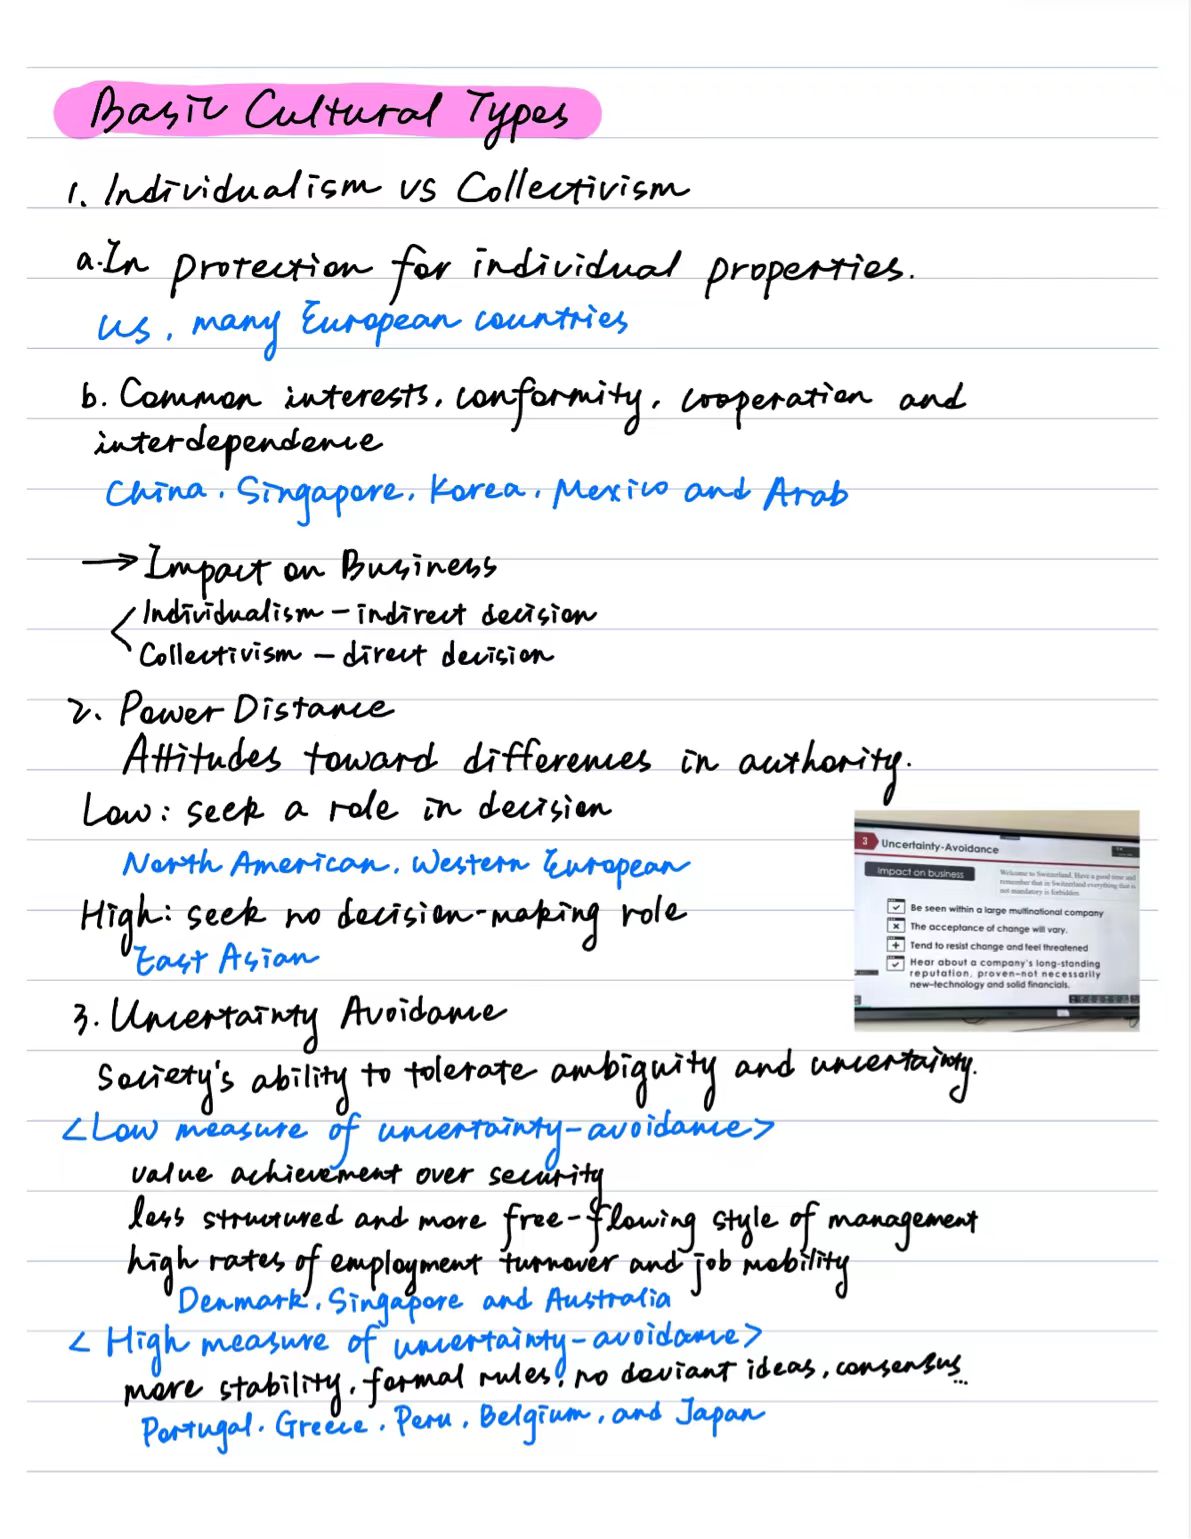 Basic Cultural Types
1. Individualism vs Collectivism
a. In protection for individual properties.
US, many European countries
b. Common interests, conformity, cooperation and
interdependence
China, Singapore, Korea, Mexico and Arab
→ Impact on Business
Individualism – indirect decision
Collectivism – direct decision
2. Power Distance
Attitudes toward differences in authority.
Low: seek a role in decision
North American, Western European
High: seek no decision-making role
East Asian
3 Uncertainty-Avoidance
Impact on business
Welcome to Switzerland. Have a good time and
remember that in Switzerland everything that is
not mandatory is forbidden
Be seen within a large multinational company
The acceptance of change will vary.
Tend to resist change and feel threatened
Hear about a company's long-standing
reputation, proven-not necessarily
new-technology and solid financials.
3. Uncertainty Avoidance
Society's ability to tolerate ambiguity and uncertainty.
<Low measure of uncertainty-avoidance>
value achievement over security
less structured and more free-flowing style of management
high rates of employment turnover and job mobility
Denmark, Singapore and Australia
<High measure of uncertainty-avoidance>
more stability, formal rules, no deviant ideas, consensus...
Portugal, Greece, Peru, Belgium, and Japan